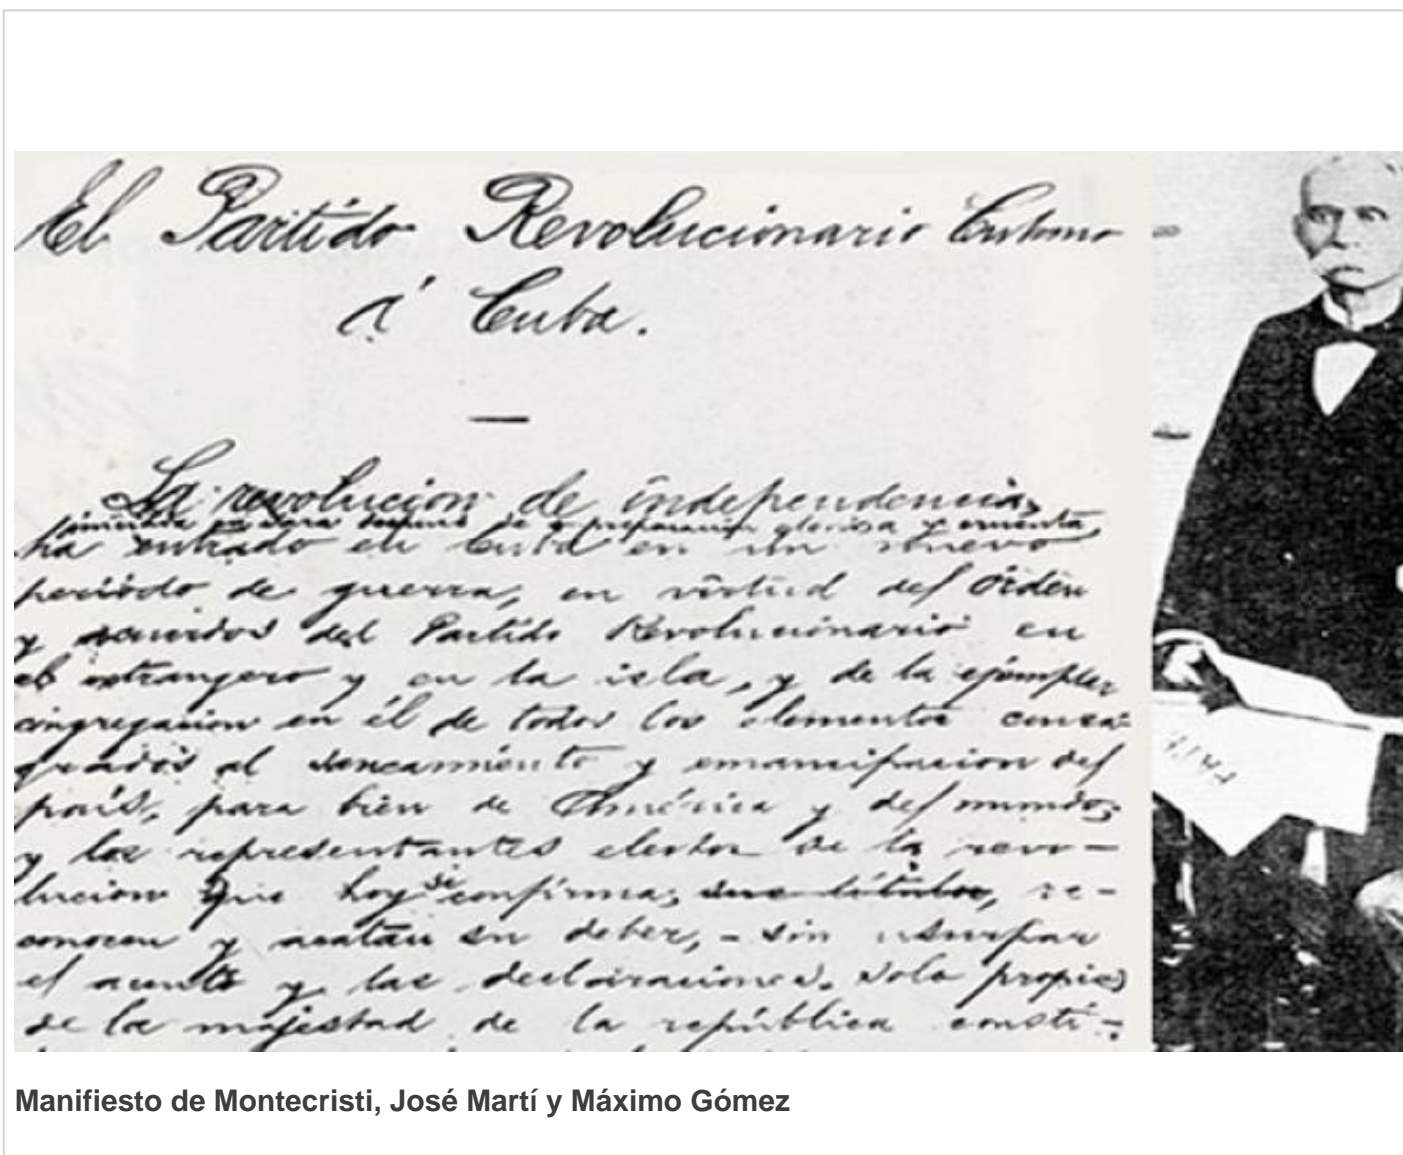 El Partido Revolucionario Cubano
á Cuba.
La revolucion de independencia,
iniciada en Yara despues de preparacion gloriosa y cruenta,
ha entrado en Cuba en un nuevo
periodo de guerra, en virtud del orden
y acuerdos del Partido Revolucionario en
el extrangero y en la isla, y de la ejemplar
congregacion en él de todos los elementos consa-
grados al saneamiento y emancipacion del
país, para bien de América y del mundo;
y los representantes electos de la revo-
lucion que hoy se confirma, sus títulos, re-
conocen y acatan su deber, - sin usurpar
el acento y las declaraciones, solo propias
de la majestad de la república consti-
Manifiesto de Montecristi, José Martí y Máximo Gómez